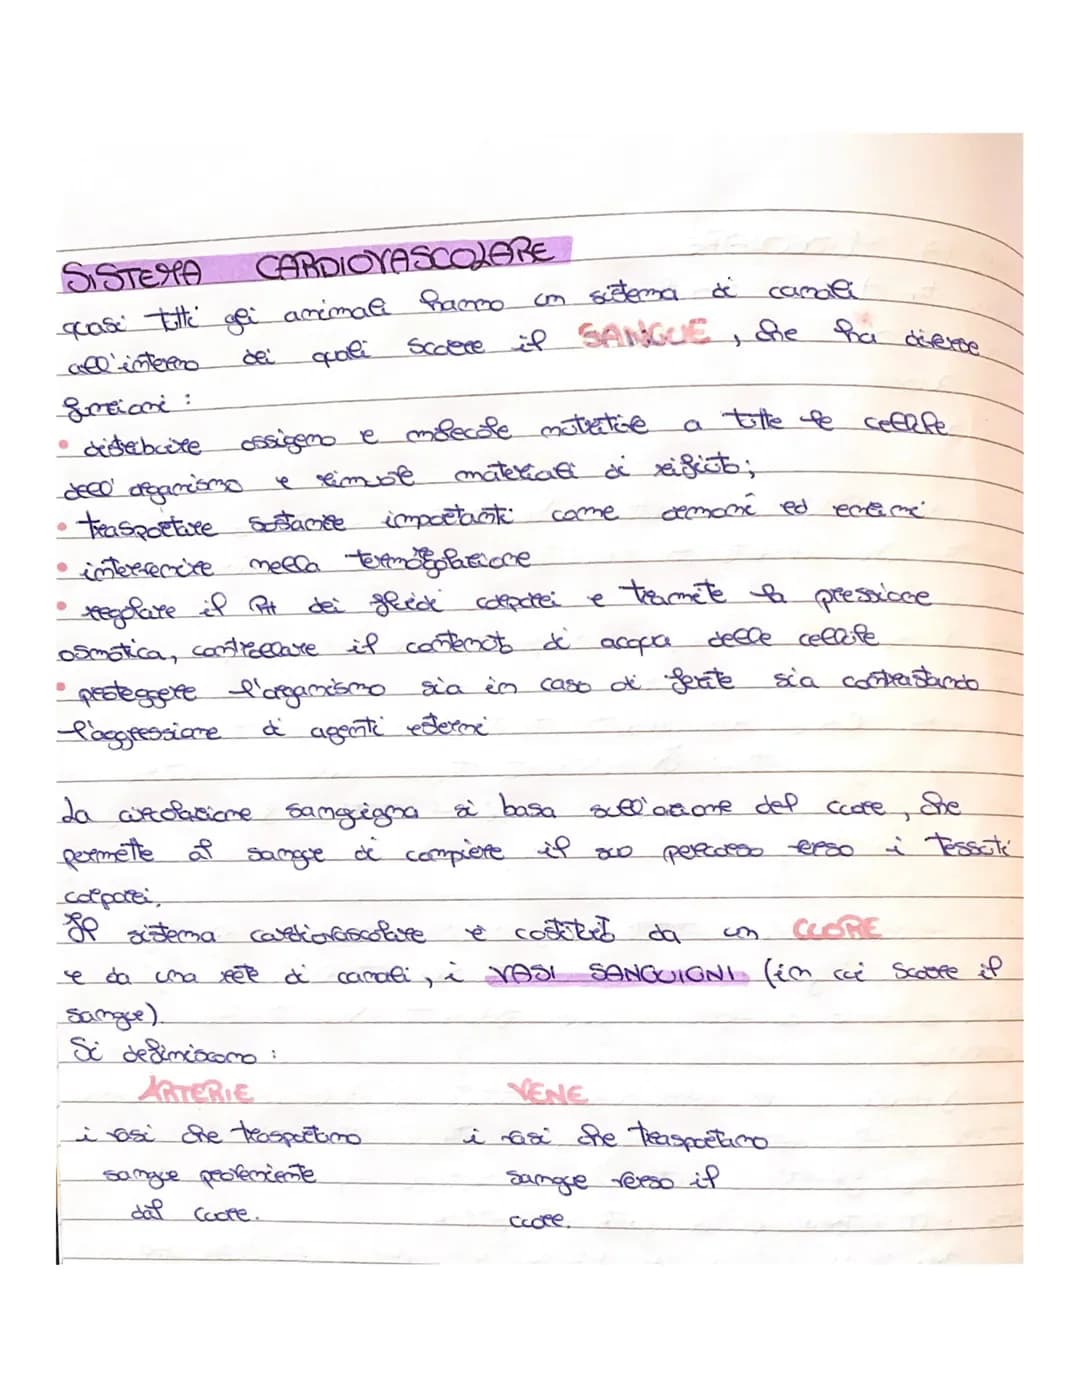 SISTEMA CARDIOVASCOLARE
quasi tutti gli animali hanno un sistema di canali
all'interno dei quali scorre il SANGUE, che ha diverse
funzioni:
• distribuire ossigeno e molecole nutritive a tutte le cellule
dell'organismo e rimuove materiali di rifiuto;
• trasportare sostanze importanti come ormoni ed enzimi
• intervenire nella termoregolazione
• regolare il PH dei fluidi corporei e tramite la pressione
osmotica, controllare il contenuto di acqua delle cellule
• proteggere l'organismo sia in caso di ferite sia contrastando
l'aggressione di agenti esterni
La circolazione sanguigna si basa sull'azione del cuore, che
permette al sangue di compiere il suo percorso verso i tessuti
corporei.
Il sistema cardiovascolare è costituito da un CUORE
e da una rete di canali, i VASI SANGUIGNI (in cui scorre il
sangue).
Si definiscono:
ARTERIE VENE
i vasi che trasportano i vasi che trasportano
sangue proveniente sangue verso il
dal cuore. cuore.